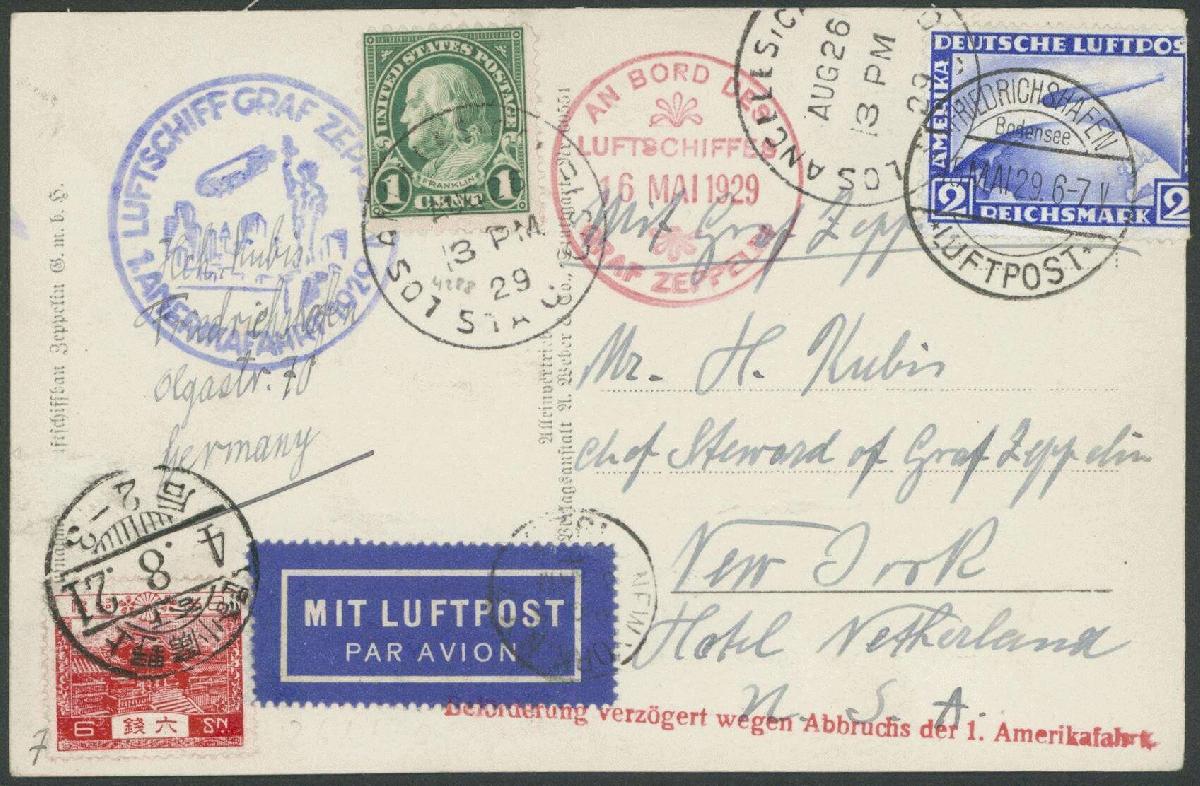 LUFTSCHIFF GRAF ZEPPELIN
1. AMERIKAFAHRT 1929
Hch. Kubis
Friedrichshafen
Olgastr. 70
Germany
UNITED STATES POSTAGE
FRANKLIN
1 CENT 1
13 PM
29
LOS
4288
AN BORD DES
LUFTSCHIFFES
16 MAI 1929
GRAF ZEPPELIN
LOS ANGELES, C
AUG 26
13 PM
29
DEUTSCHE LUFTPOS
AMERIKA
2 REICHSMARK 2
FRIEDRICHSHAFEN
Bodensee
MAI 29. 6-7 V
* LUFTPOST *
Mit Graf Zeppelin
Mr. H. Kubis
chef Steward of Graf Zeppelin
New York
Hotel Netherland
U. S. A.
Luftschiffbau Zeppelin G. m. b. H.
Alleinvertrieb
Verlagsanstalt A. Weber & Co.,
4.8.21
2-3
6 六錢 SN.
MIT LUFTPOST
PAR AVION
NEW YORK
Beförderung verzögert wegen Abbruchs der 1. Amerikafahrt
7